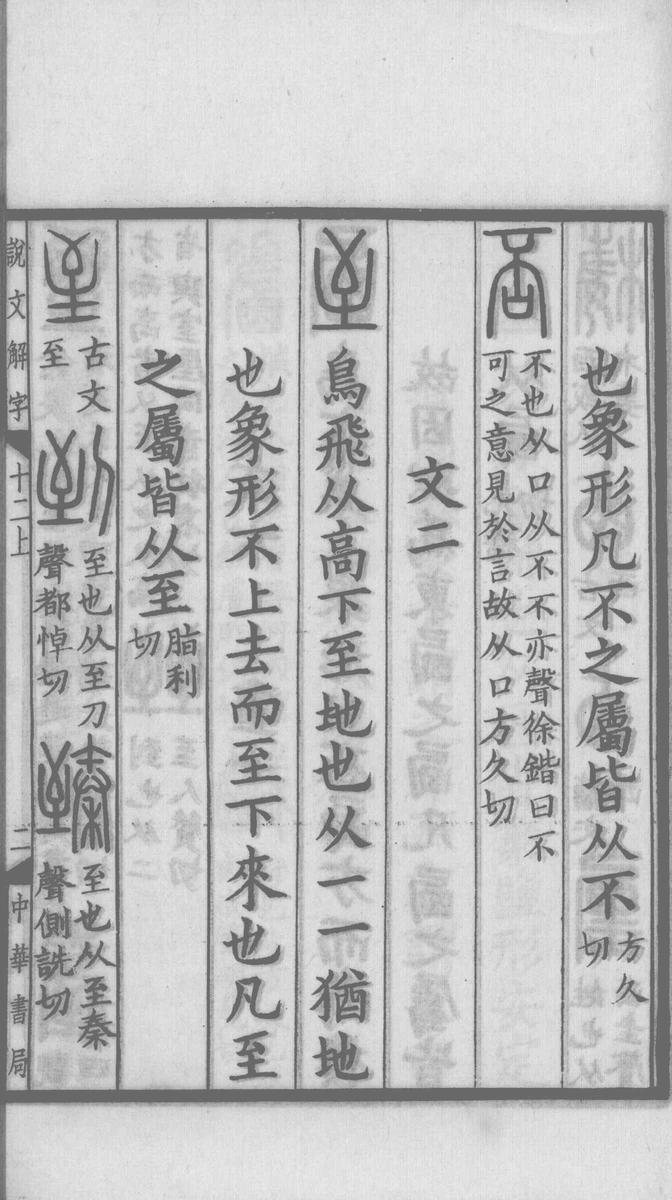 也象形凡不之屬皆从不方久切
否不也从口从不不亦聲徐鍇曰不可之意見於言故从口方久切
文二
至鳥飛从高下至地也从一一猶地
也象形不上去而至下來也凡至
之屬皆从至脂利切
𡊾古文至到至也从至刀聲都悼切臻至也从至秦聲側詵切
說文解字 十二上 二 中華書局